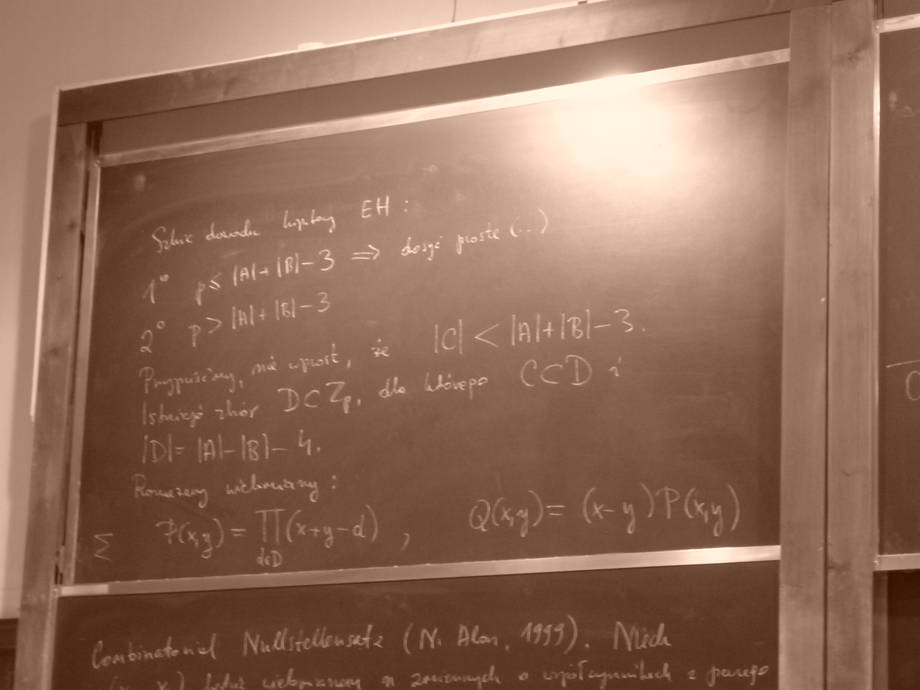 Szkic dowodu hipotezy EH :
1° p ≤ |A|+|B|-3 ⟹ dosyć proste (...)
2° p > |A|+|B|-3
Przypuśćmy, nie wprost, że |C| < |A|+|B|-3.
Istnieje zbiór D⊂Z_p, dla którego C⊂D i
|D|= |A|-|B|-4.
Rozważmy wielomiany :
Σ P(x,y) = ∏_{d∈D}(x+y-d) , Q(x,y)= (x-y)P(x,y)
Combinatorial Nullstellensatz (N. Alon, 1999). Niech
będzie wielomianem n zmiennych o współczynnikach z pewnego